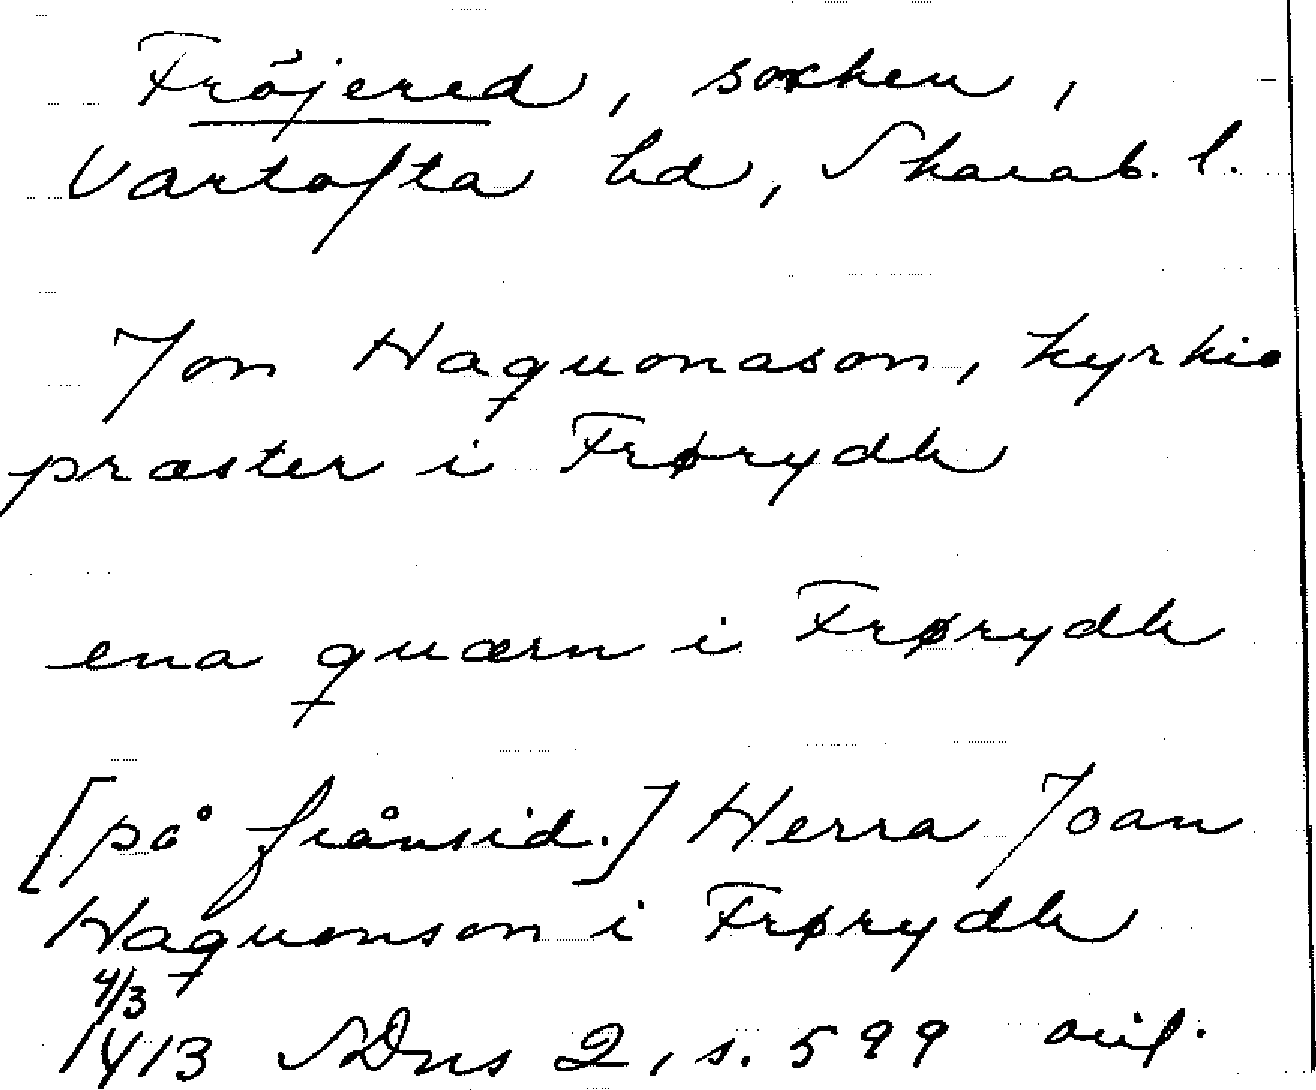 Fröjered, socken,
Vartofta hd, Skarab. l.
Jon Haquonason, kyrkio
præster i Frørydh
ena quærn i Frørydh
[på frånsid.] Herra Joan
Haquonson i Frørydh
4/3
1413 SDns 2, s. 599 avil.